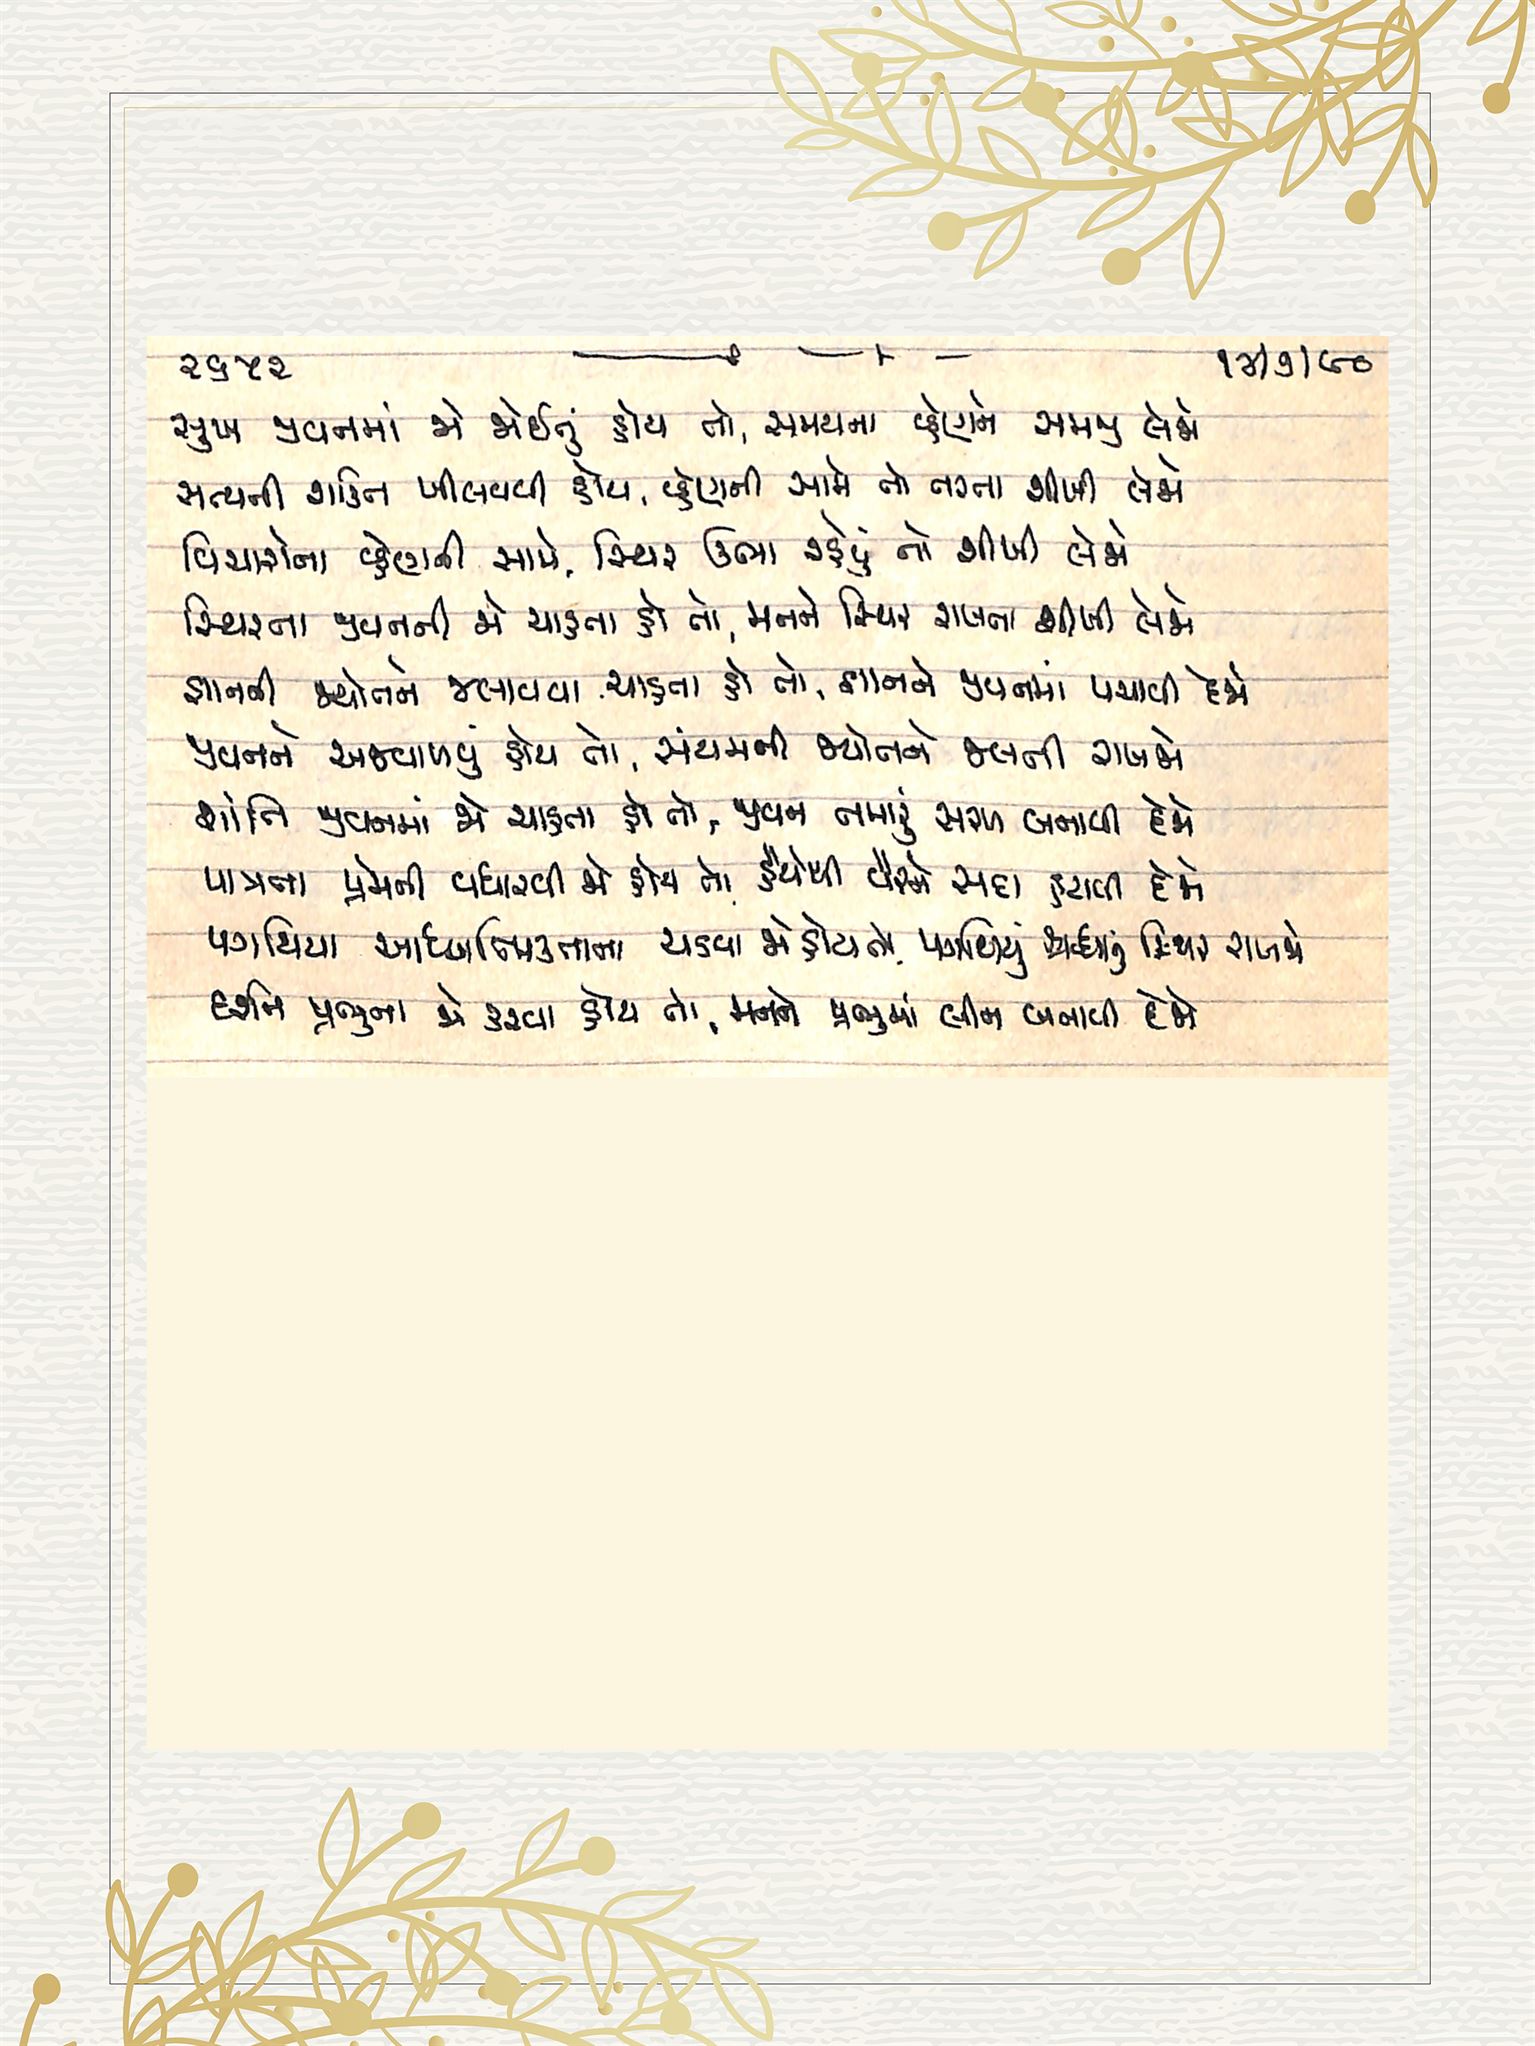 ૨૬૫૨ ૧૪/૭/૯૦
સુખ જીવનમાં જો જોઈતું હોય તો, સમયના વ્હેણને સમજી લેજો
સત્યની શક્તિ ખીલવવી હોય, વ્હેણની સામે તો તરતા શીખી લેજો
વિચારોના વ્હેણની સામે, સ્થિર ઉભા રહેવું તો શીખી લેજો
સ્થિરતા જીવનની જો ચાહતા હો તો, મનને સ્થિર રાખતા શીખી લેજો
જ્ઞાનની જ્યોતને જલાવવા ચાહતા હો તો, જ્ઞાનને જીવનમાં પચાવી દેજો
જીવનને અજવાળવું હોય તો, સંયમની જ્યોતને જલતી રાખજો
શાંતિ જીવનમાં જો ચાહતા હો તો, જીવન તમારું સરળ બનાવી દેજો
પાત્રતા પ્રેમની વધારવી જો હોય તો હૈયેથી વૈરને સદા હટાવી દેજો
પગથિયા આધ્યાત્મિકતાના ચડવા જો હોય તો, પગથિયું શ્રદ્ધાનું સ્થિર રાખજો
દર્શન પ્રભુના જો કરવા હોય તો, મનને પ્રભુમાં લીન બનાવી દેજો